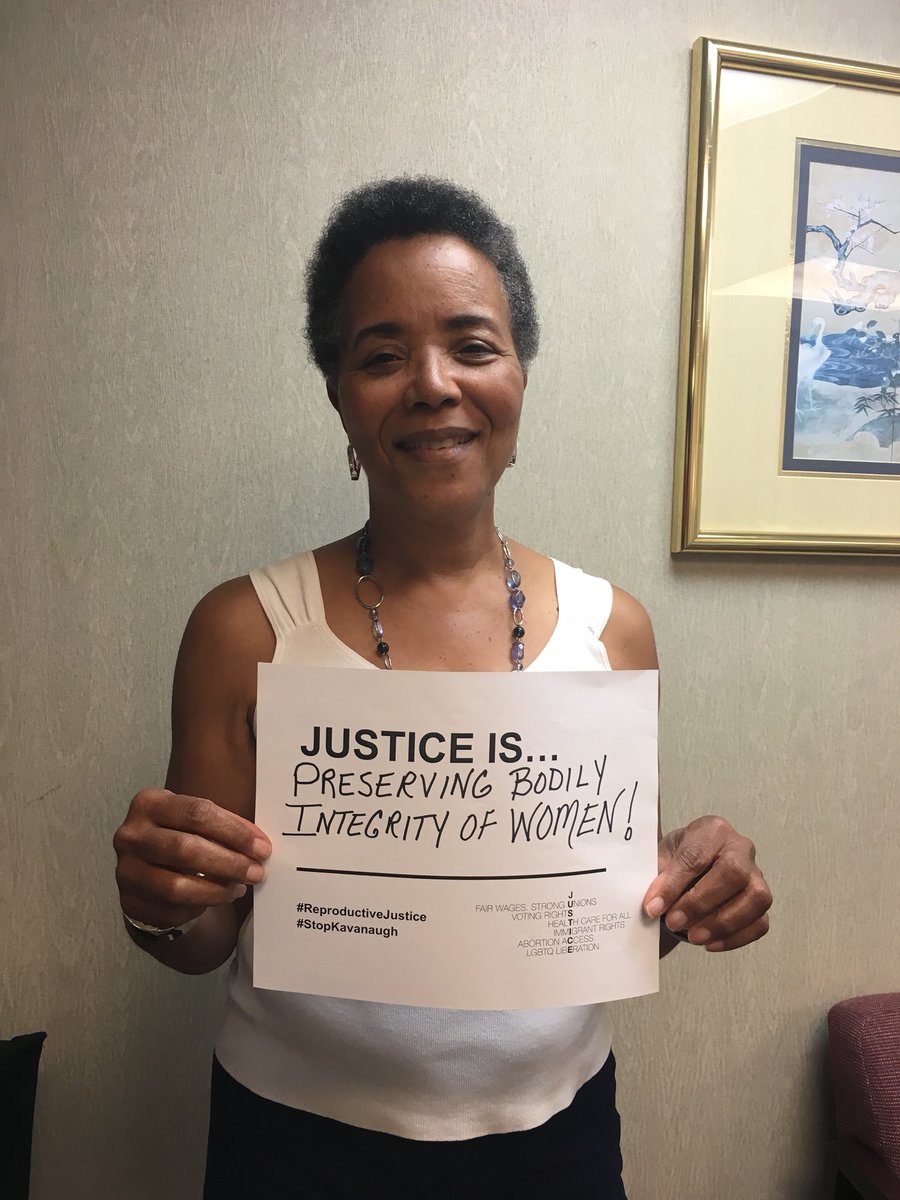 JUSTICE IS...
PRESERVING BODILY
INTEGRITY OF WOMEN!
#ReproductiveJustice
#StopKavanaugh
FAIR WAGES. STRONG UNIONS.
VOTING RIGHTS.
HEALTH CARE FOR ALL.
IMMIGRANT RIGHTS.
ABORTION ACCESS.
LGBTQ LIBERATION.